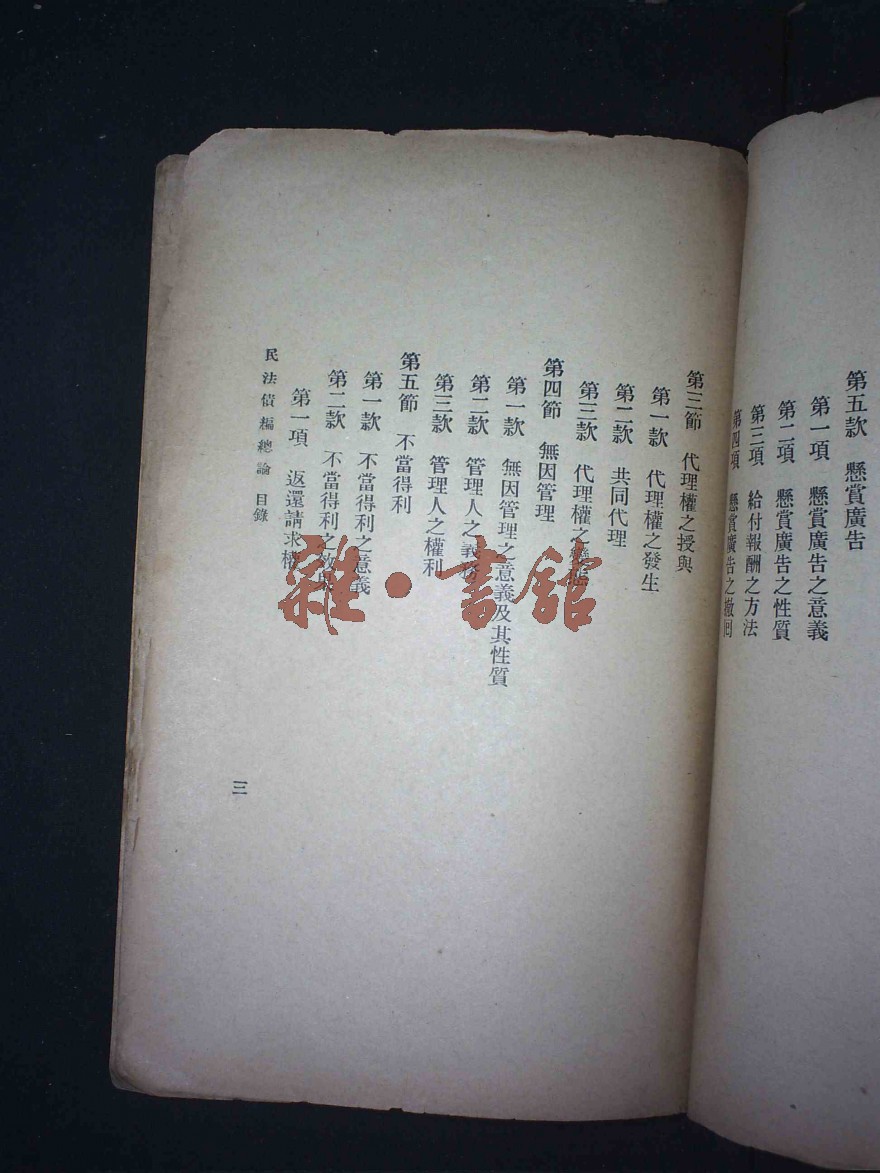 第五款 懸賞廣告
第一項 懸賞廣告之意義
第二項 懸賞廣告之性質
第三項 給付報酬之方法
第四項 懸賞廣告之撤回
第三節 代理權之授與
第一款 代理權之發生
第二款 共同代理
第三款 代理權之
第四節 無因管理
第一款 無因管理之意義及其性質
第二款 管理人之義務
第三款 管理人之權利
第五節 不當得利
第一款 不當得利之意義
第二款 不當得利之效果
第一項 返還請求權
民法債編總論 目錄
三
雜·書館